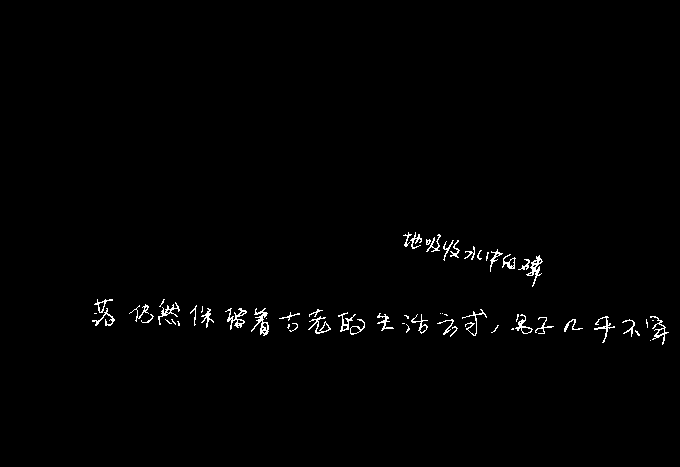 地吸收水中的磷
落仍然保留着古老的生活方式，男子几乎不穿